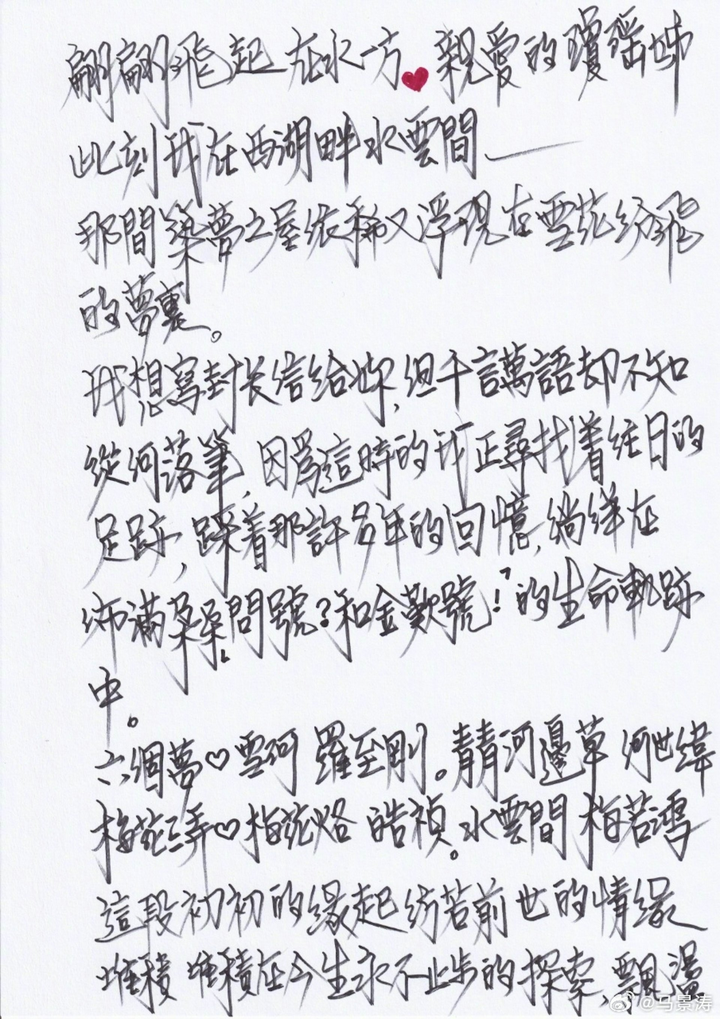 翩翩飛起在水一方❤親愛的瓊瑤姊
此刻我在西湖畔水雲間——
那間築夢之屋依稀又浮現在雪花紛飛
的夢裏。
我想寫封长信给你,但千言萬語却不知
從何落筆,因爲這時的我正尋找着往日的
足跡,踩着那許多年的回憶,徜徉在
佈滿朵朵問號?和金歎號!的生命軌跡
中。
六個夢♡雪珂 羅至剛。青青河邊草 何世緯
梅花三弄♡梅花烙 皓禎。水雲間 梅若鴻
這段初初的緣起彷若前世的情緣
堆積 堆積在今生永不止步的探索,飄盪
@马景涛